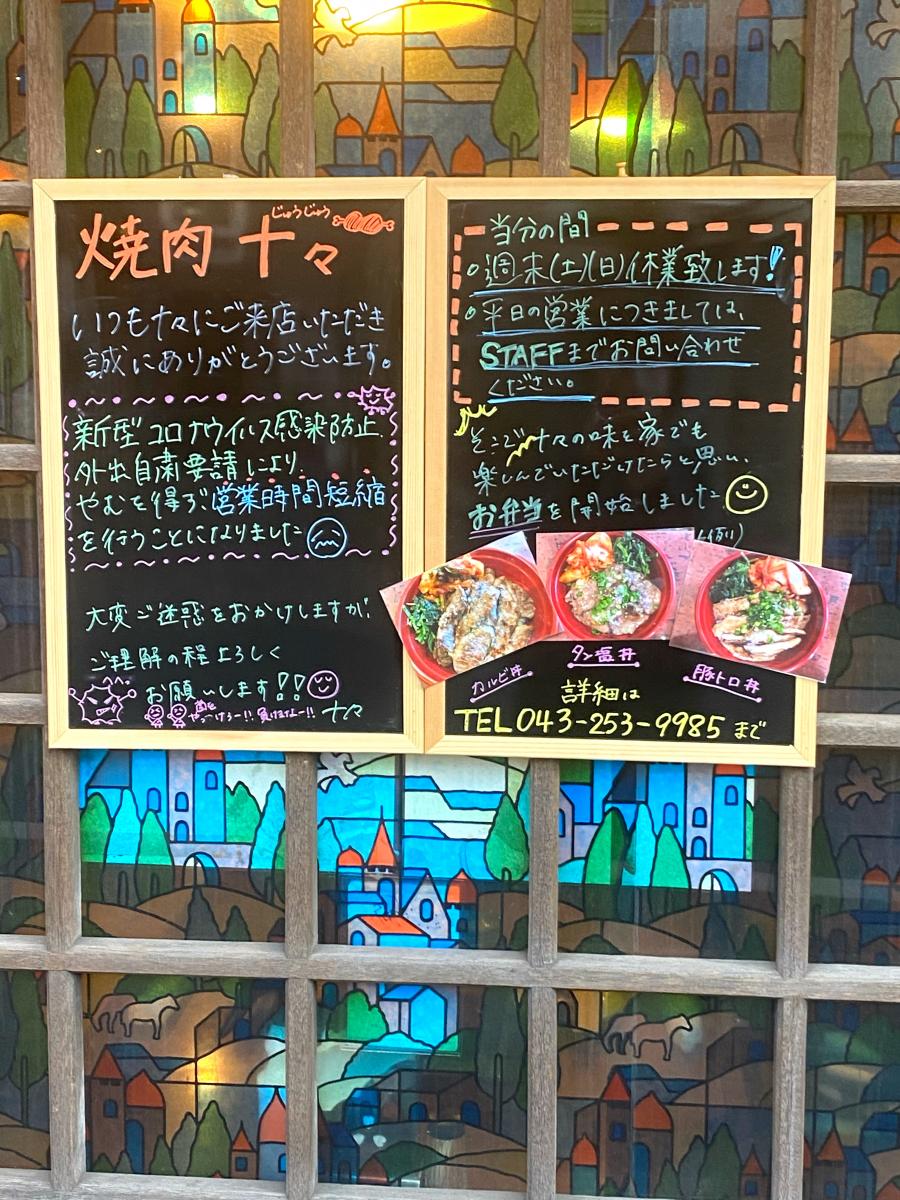 じゅうじゅう
焼肉 十々
いつも十々にご来店いただき
誠にありがとうございます。
新型コロナウイルス感染防止
外出自粛要請により、
やむを得ず、営業時間短縮
を行うことになりました
大変ご迷惑をおかけしますが、
ご理解の程よろしく
お願いします!!
やっつけろー!! 負けるなー!! 十々
当分の間
。週末(土)(日)休業致します!
。平日の営業につきましては、
STAFFまでお問い合わせ
ください。
そこで十々の味を家でも
楽しんでいただけたらと思い、
お弁当を開始しました
(例)
カルビ丼
タン塩丼
豚トロ丼
詳細は
TEL 043-253-9985 まで